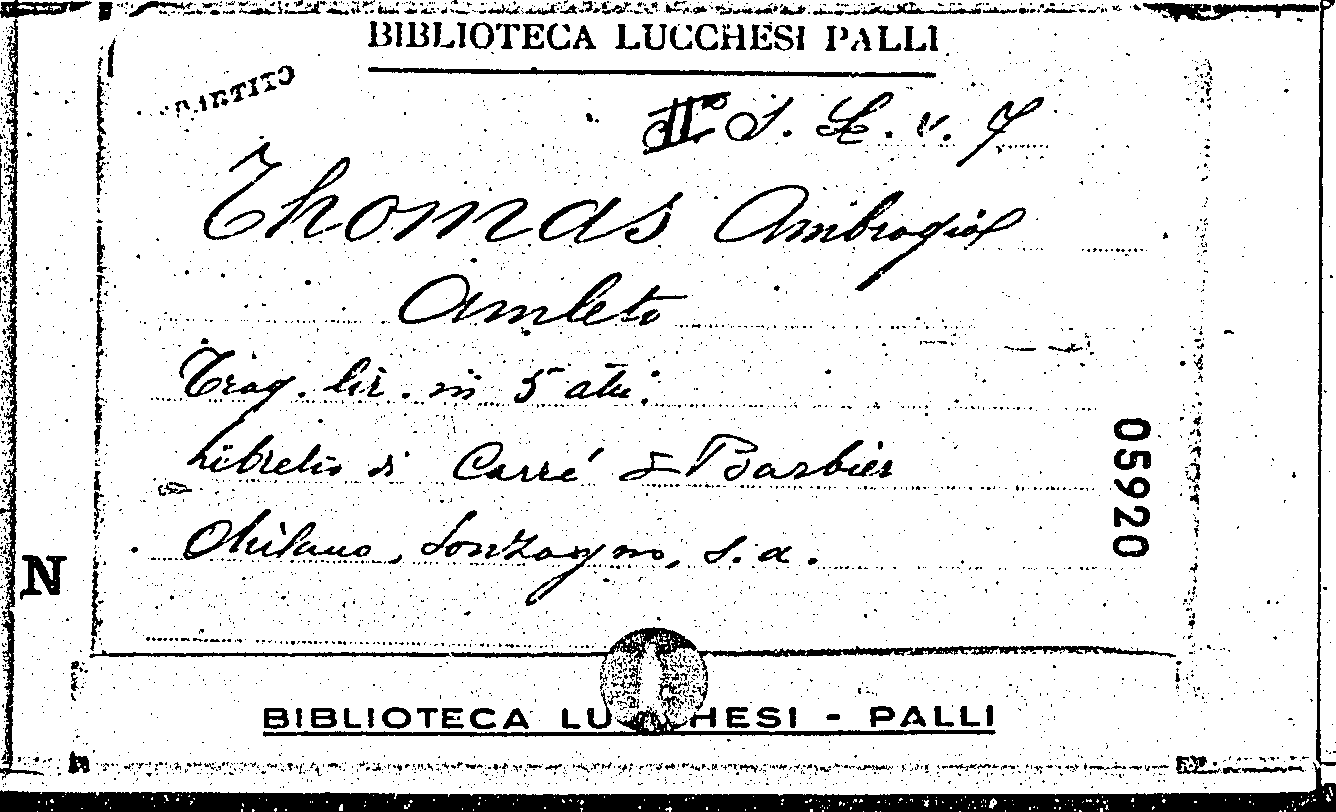 BIBLIOTECA LUCCHESI PALLI
S. L. v. 7
Thomas Ambrogio
Amleto
Trag. lir. in 5 atti.
Libretto di Carré & Barbier
Milano, Sonzogno, s.a.
05920
N
BIBLIOTECA LUCCHESI - PALLI